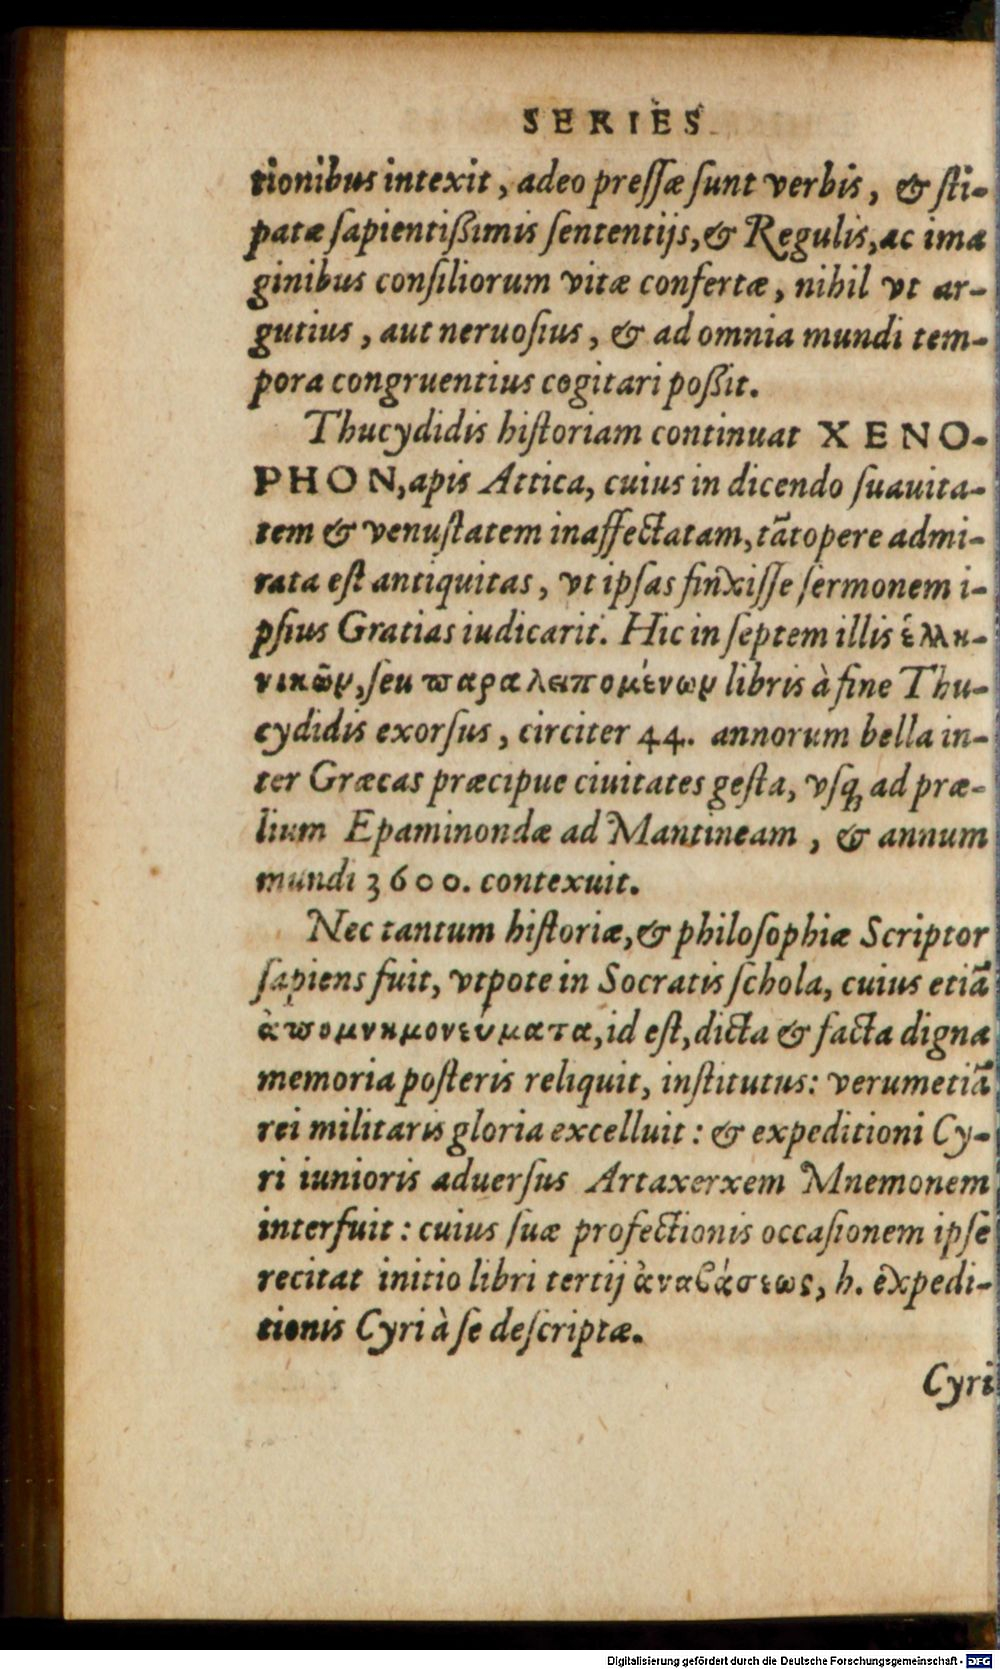 SERIES
tionibus intexit, adeo preſſæ ſunt verbis, & ſti-
patæ ſapientißimis ſententijs, & Regulis, ac ima
ginibus conſiliorum vitæ confertæ, nihil vt ar-
gutius, aut neruoſius, & ad omnia mundi tem-
pora congruentius cogitari poßit.
Thucydidis hiſtoriam continuat XENO-
PHON, apis Attica, cuius in dicendo ſuauita-
tem & venuſtatem inaffectatam, tãtopere admi-
rata eſt antiquitas, vt ipſas finxiſſe ſermonem i-
pſius Gratias iudicarit. Hic in ſeptem illis ἑλλη-
νικῶν, ſeu παραλειπομένων libris à fine Thu-
cydidis exorſus, circiter 44. annorum bella in-
ter Græcas præcipue ciuitates geſta, vſq; ad præ-
lium Epaminondæ ad Mantineam, & annum
mundi 3600. contexuit.
Nec tantum hiſtoriæ, & philoſophiæ Scriptor
ſapiens fuit, vtpote in Socratis ſchola, cuius etiã
ἀπομνημονεύματα, id eſt, dicta & facta digna
memoria poſteris reliquit, inſtitutus: verumetiã
rei militaris gloria excelluit: & expeditioni Cy-
ri iunioris aduerſus Artaxerxem Mnemonem
interfuit: cuius ſuæ profectionis occaſionem ipſe
recitat initio libri tertij ἀναβάσεως, h. expedi-
tionis Cyri à ſe deſcriptæ.
Cyri
Digitalisierung gefördert durch die Deutsche Forschungsgemeinschaft - DFG